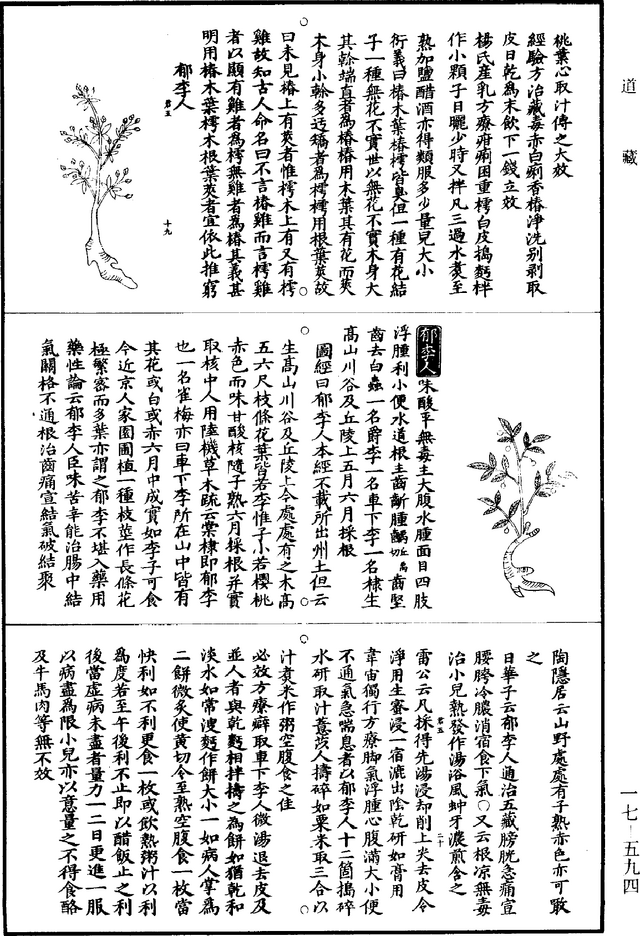 道藏
桃葉心取汁傅之大效
經驗方治藏毒赤白痢香椿淨洗刷剥取
皮日乾爲末飲下一錢立效
楊氏產乳方療疳痢困重樗白皮搗麪拌
作小顆子日曬少時又拌凡三過水煑至
熟加鹽醋酒亦得頻服多少量兒大小
衍義曰椿木葉椿樗皆臭但一種有花結
子一種無花不實世以無花不實木身大
其榦端直者爲椿椿用木葉其有花而莢
木身小榦多迂矮者爲樗樗用根葉莢故
曰未見椿上有莢者惟樗木上有又有樗
雞故知古人命名曰不言椿雞而言樗雞
者以顯有雞者爲樗無雞者爲椿其義甚
明用椿木葉樗木根葉莢者宜依此推窮
郁李人
十九
郁李人味酸平無毒主大腹水腫面目四肢
浮腫利小便水道根主齒齗腫齲齒堅
齒去白蟲一名爵李一名車下李一名棣生
高山川谷及丘陵上五月六月採根
圖經曰郁李人本經不載所出州土但云
生髙山川谷及丘陵上今處處有之木高
五六尺枝條花葉皆若李惟子小若櫻桃
赤色而味甘酸核隨子熟六月採根并實
取核中人用陸機草木疏云棠棣即郁李
也一名雀梅亦曰車下李所在山中皆有
其花或白或赤六月中成實如李子可食
今近京人家園圃植一種枝莖作長條花
極繁密而多葉亦謂之郁李不堪入藥用
藥性論云郁李人臣味苦辛能治腸中結
氣關格不通根治齒痛宣結氣破結聚
陶隱居云山野處處有子熟赤色亦可噉
之
日華子云郁李人通治五藏膀胱急痛宣
腰胯冷膿消宿食下氣○又云根凉無毒
治小兒熱發作湯浴風蚛牙濃煎含之
二十
雷公云凡採得先湯浸却削上尖去皮令
淨用生蜜浸一宿漉出陰乾研如膏用
韋宙獨行方療脚氣浮腫心腹滿大小便
不通氣急喘息者以郁李人十二箇搗碎
水研取汁薏苡人擣碎如粟米取三合以
汁煑米作粥空腹食之佳
必效方療癖取車下李人微湯退去皮及
並人者與乾麪相拌擣之爲餅如猶乾和
淡水如常溲麪作餅大小一如病人掌爲
二餅微炙使黄切令至熟空腹食一枚當
快利如不利更食一枚或飲熱粥汁以利
爲度若至午後利不止即以醋飯止之利
後當虚病未盡者量力一二日更進一服
以病盡爲限小兒亦以意量之不得食酪
及牛馬肉等無不效
一七—五九四